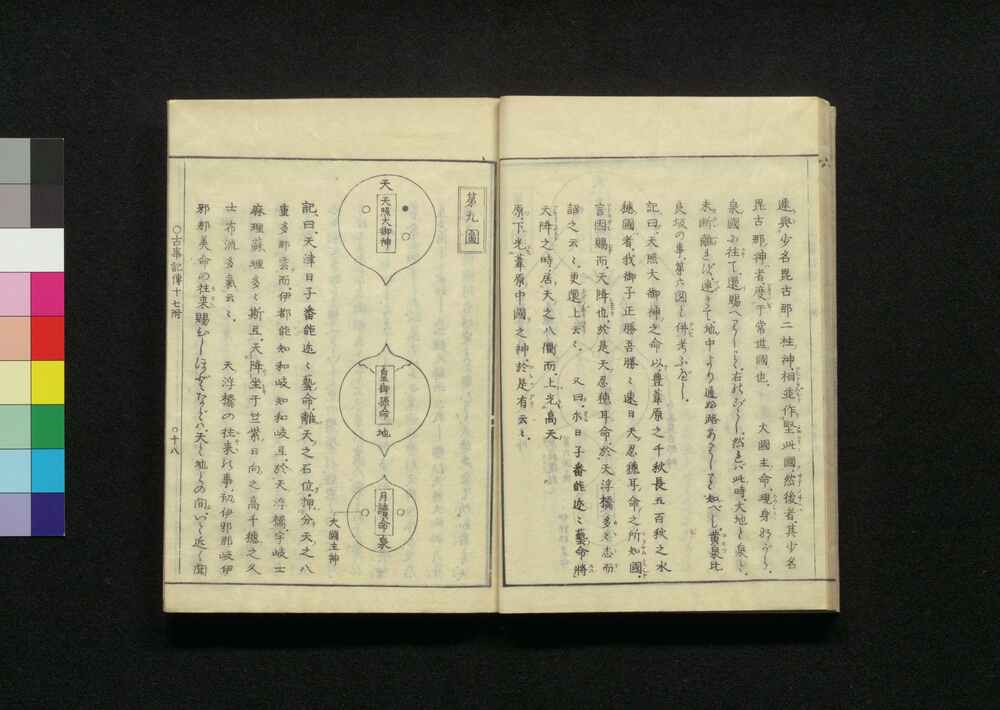 連與少名毘古那二柱神相並作堅此國然後者其少名
毘古那神者度于常世國也 大國主命現身
泉國に往て還賜へ
地中より通ふ路ありし 黄泉比
良坂の事第六図と併考ふべし
記曰天照大御神之命以豊葦原之千秋長五百秋之水
穂國者我御子正勝吾勝々速日天忍穂耳命之所知國
言因賜而天降也於是天忍穂耳命於天浮橋多々志而
詔之云々更還上云々 又曰 日子番能迩々藝命將
天降之時居天之八衢而上光高天
原下光葦原中國之神於是有云々
第九圖
天
天照大御神
皇御孫命
地
月讀命
泉
大國主神
記曰天津日子番能迩々藝命離天之石位押分天之八
重多那云而伊都能知和岐知和岐弖於天浮橋宇岐士
麻理蘇理多々斯弖天降坐于竺紫日向之高千穂之久
士布流多氣云々 天浮橋の往来の事初伊邪那岐伊
邪那美命の往来賜 天と地との間いと近く
○古事記傳十七附
○十八